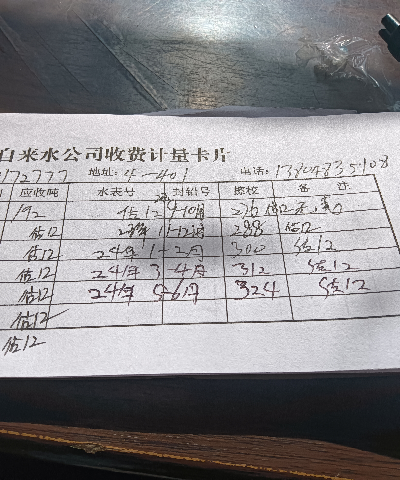 自来水公司收费计量卡片
172777 地址: 4-401 电话: 13804835108
应收吨 水表号 封铅号 原校 备 注
192 估12 9-10月 276 估12
估12 23年 11-12月 288 估12
估12 24年 1-2月 300 估12
估12 24年 3-4月 312 估12
估12 24年 5-6月 324 估12
估12
估12